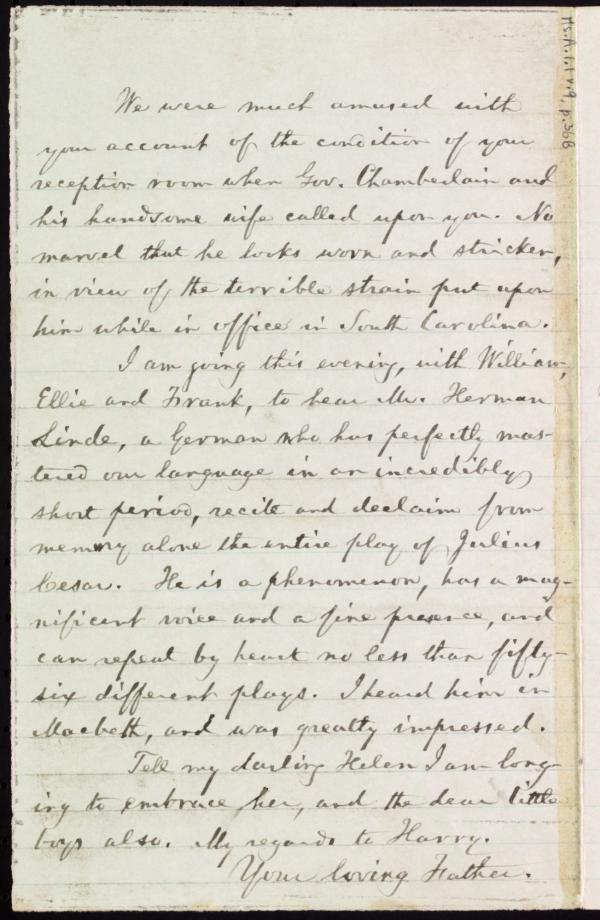 We were much amused with
your account of the condition of your
reception room when Gov. Chamberlain and
his handsome wife called upon you. No
marvel that he looks worn and stricken,
in view of the terrible strain put upon
him while in office in South Carolina.
I am going this evening, with William,
Ellie and Frank, to hear Mr. Herman
Linde, a German who has perfectly mas-
tered our language in an incredibly
short period, recite and declaim from
memory alone the entire play of Julius
Cesar. He is a phenomenon, has a mag-
nificent voice and a fine presence, and
can repeat by heart no less than fifty-
six different plays. I heard him in
Macbeth, and was greatly impressed.
Tell my darling Helen I am long-
ing to embrace her, and the dear little
boys also. My regards to Harry.
Your loving Father.
Ms.A.1.1 v.9, p.36B